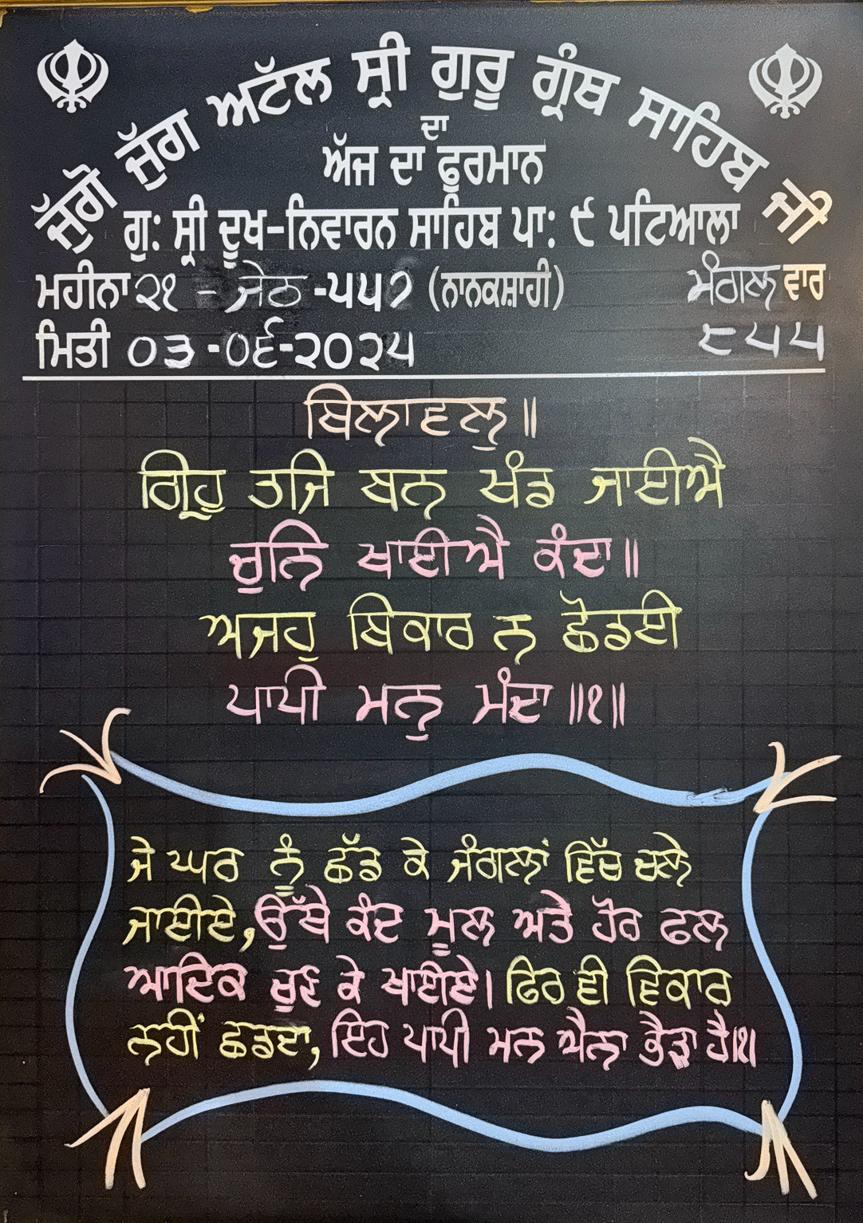 ਜੁੱਗੋ ਜੁੱਗ ਅਟੱਲ ਸ੍ਰੀ ਗੁਰੂ ਗ੍ਰੰਥ ਸਾਹਿਬ ਜੀ
ਦਾ
ਅੱਜ ਦਾ ਫੁਰਮਾਨ
ਗੁ: ਸ੍ਰੀ ਦੂਖ-ਨਿਵਾਰਨ ਸਾਹਿਬ ਪਾ: ੯ ਪਟਿਆਲਾ
ਮਹੀਨਾ ੨੧ - ਜੇਠ -੫੫੭ (ਨਾਨਕਸ਼ਾਹੀ) ਮੰਗਲਵਾਰ
ਮਿਤੀ ੦੩ -੦੬-੨੦੨੫ ੮੫੫
ਬਿਲਾਵਲੁ॥
ਗ੍ਰਿਹੁ ਤਜਿ ਬਨ ਖੰਡ ਜਾਈਐ
ਚੁਨਿ ਖਾਈਐ ਕੰਦਾ॥
ਅਜਹੁ ਬਿਕਾਰ ਨ ਛੋਡਈ
ਪਾਪੀ ਮਨੁ ਮੰਦਾ॥੧॥
ਜੇ ਘਰ ਨੂੰ ਛੱਡ ਕੇ ਜੰਗਲਾਂ ਵਿੱਚ ਚਲੇ
ਜਾਈਏ, ਉੱਥੇ ਕੰਦ ਮੂਲ ਅਤੇ ਹੋਰ ਫਲ
ਆਦਿਕ ਚੁਣ ਕੇ ਖਾਈਏ। ਫਿਰ ਵੀ ਵਿਕਾਰ
ਨਹੀਂ ਛਡਦਾ, ਇਹ ਪਾਪੀ ਮਨ ਐਨਾ ਭੈੜਾ ਹੈ॥੧॥